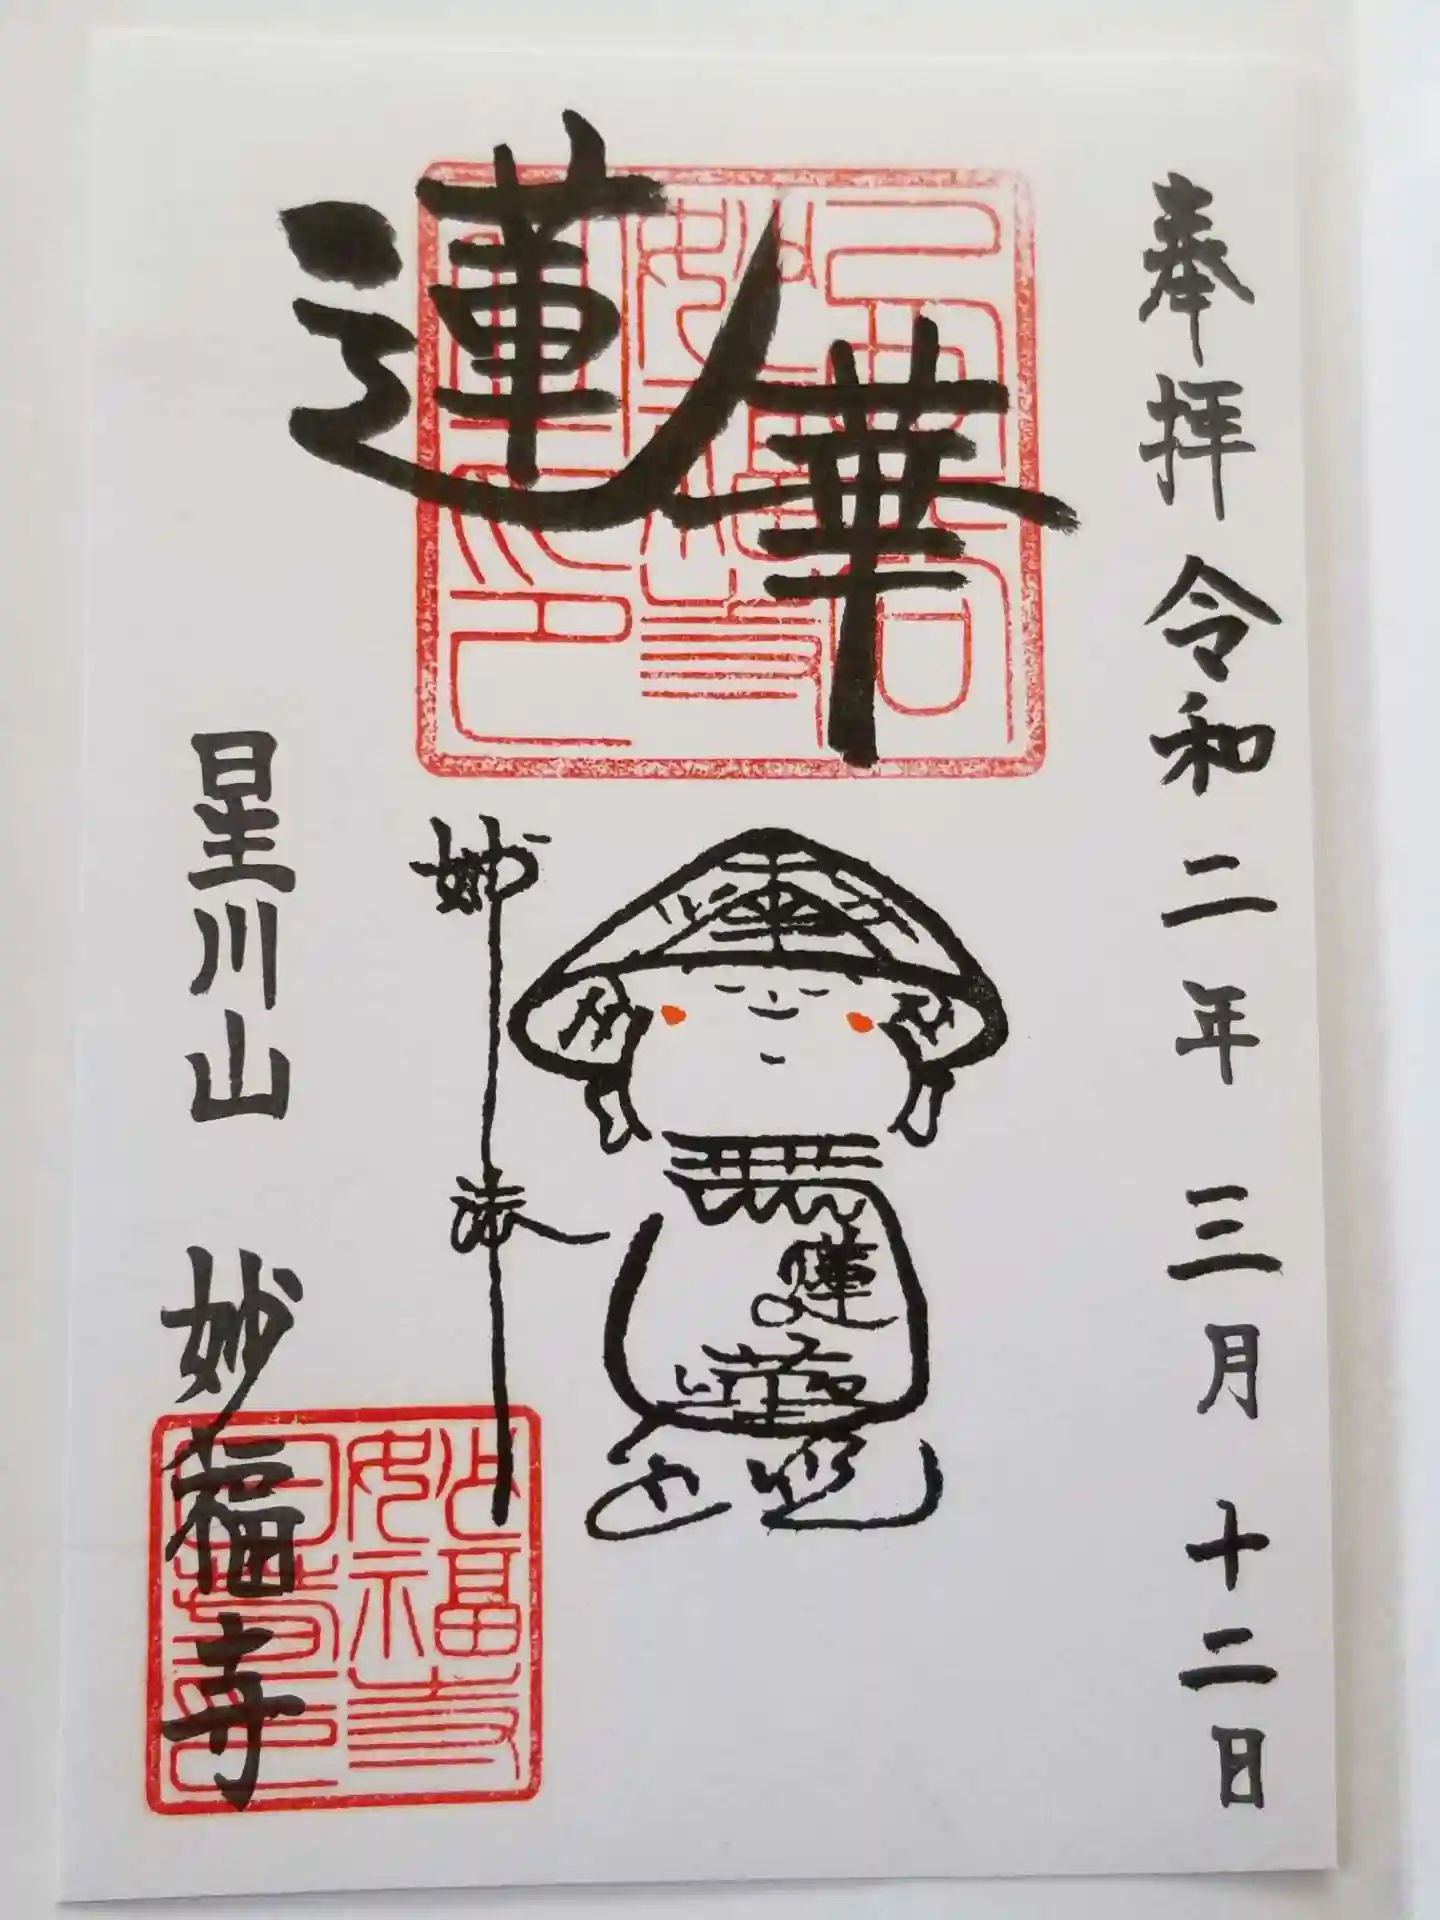 奉拝 令和二年 三月 十二日
蓮華
妙法
蓮華
星川山 妙福寺
妙福寺